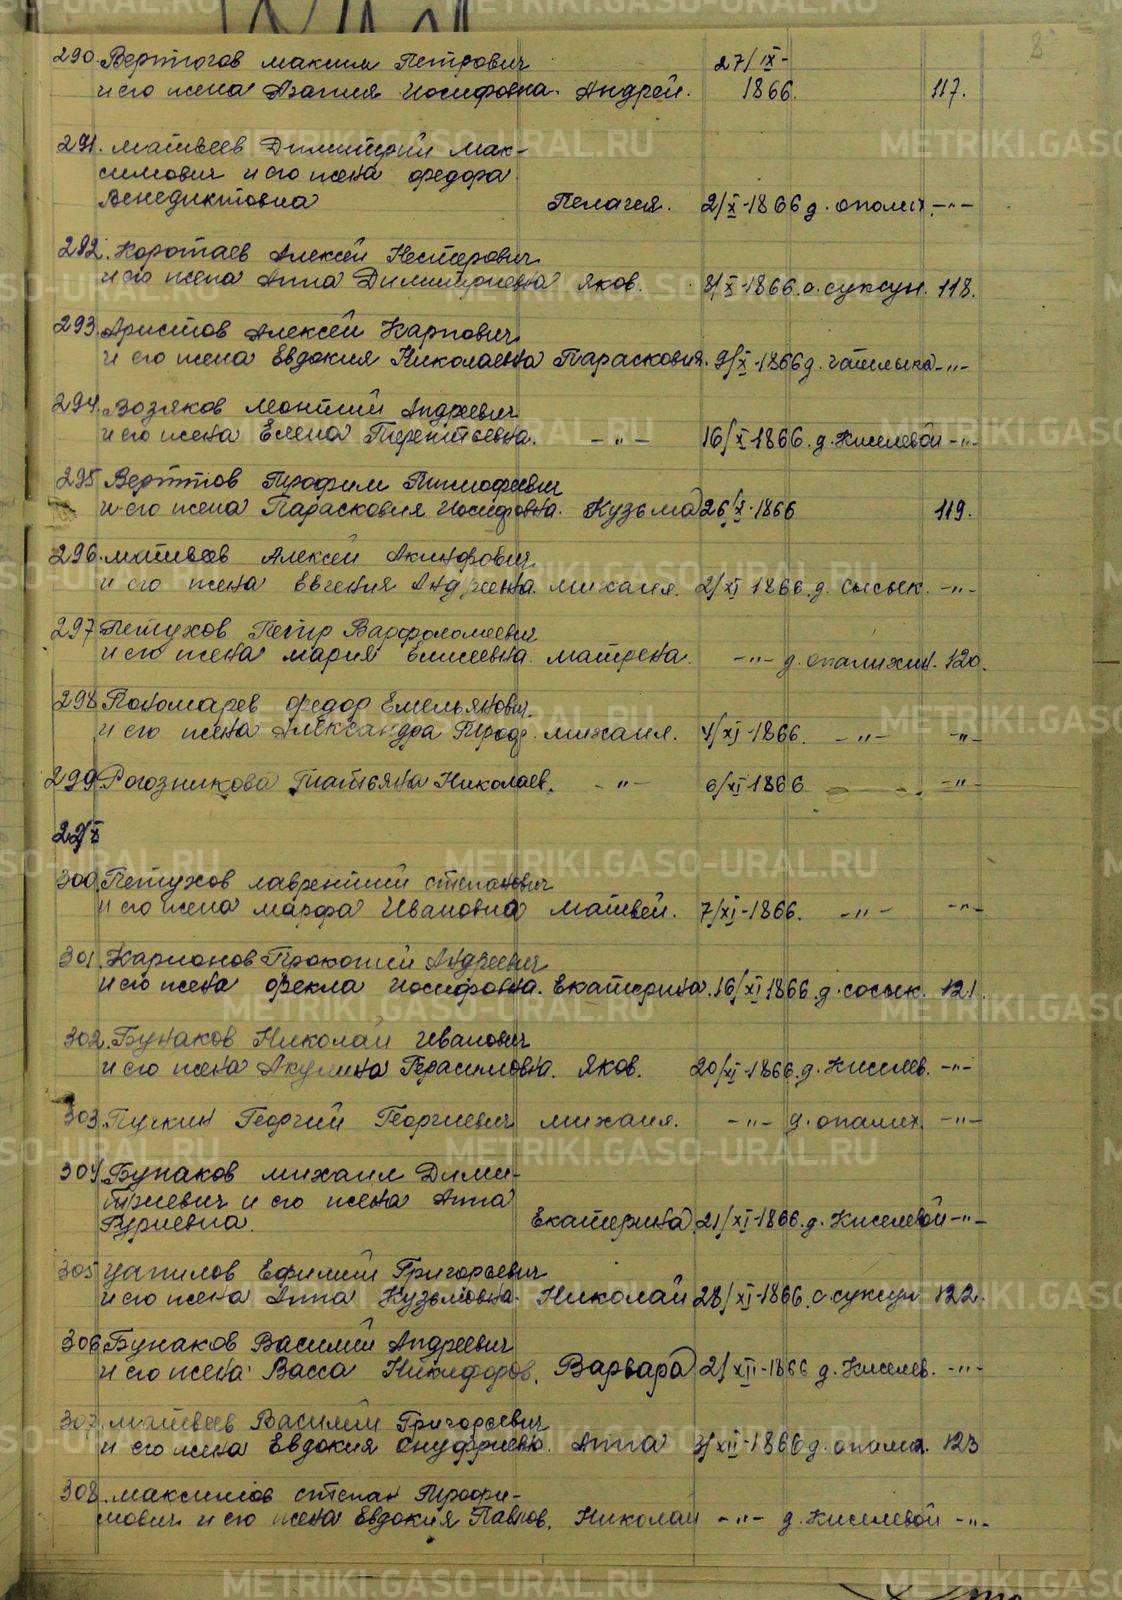 8
290. Вертогов Максим Петрович 27/IX-
и его жена Агапия Иосифовна. Андрей. 1866. 117.
291. Матвеев Димитрий Мак-
симович и его жена Федора
Венедиктовна Пелагея. 2/X-1866 д. опалих. -"-
292. Коротаев Алексей Нестерович
и его жена Анна Димитриевна Яков. 8/X-1866. с. суксун. 118.
293. Аристов Алексей Карпович
и его жена Евдокия Николаевна Парасковия. 9/X-1866 д. -"-
294. Возяков Леонтий Андреевич
и его жена Елена Терентьевна. -"- 16/X-1866. д. Киселевой -"-
295 Вертипов Трофим Тимофеевич
и его жена Парасковия Иосифовна. Кузьма 26/X-1866 119.
296. Матвеев Алексей Акинфович
и его жена Евгения Андреевна. Михаил. 2/XI 1866. д. Сысык. -"-
297 Петухов Петр Варфоломеевич
и его жена Мария Елисеевна. Матрена. -"- д. опалихин. 120.
298 Пономарев Федор Емельянович.
и его жена Александра Троф. Михаил. 4/XI-1866. -"- -"-
299 Рогозникова Татьяна Николаев. -"- 6/XI 1866 -"-
22/X
300. Петухов Лаврентий Степанович
и его жена Марфа Ивановна Матвей. 7/XI-1866. -"- -"-
301. Карионов Прокопий Андреевич
и его жена Фекла Иосифовна. Екатерина. 16/XI 1866. д. сосык. 121.
302. Бунаков Николай Иванович
и его жена Акулина Герасимовна. Яков. 20/XI-1866. д. Киселев. -"-
303. Пучкин Георгий Георгиевич Михаил. -"- д. опалих. -"-
304. Бунаков Михаил Дими-
триевич и его жена Анна
Гуриевна. Екатерина. 21/XI-1866. д. Киселевой -"-
305 Цапилов Ефимий Григорьевич
и его жена Анна Кузьмовна. Николай 28/XI-1866. с суксун 122.
306 Бунаков Василий Андреевич
и его жена Васса Никифоров. Варвара 2/XII-1866 д. Киселев. -"-
307. Матвеев Василий Григорьевич
и его жена Евдокия Онуфриевн. Анна 3/XII-1866 д. опалих. 123
308. Максимов Степан Трофи-
мович и его жена Евдокия Павлов. Николай -"- д. Киселевой -"-
METRIKI.GASO-URAL.RU